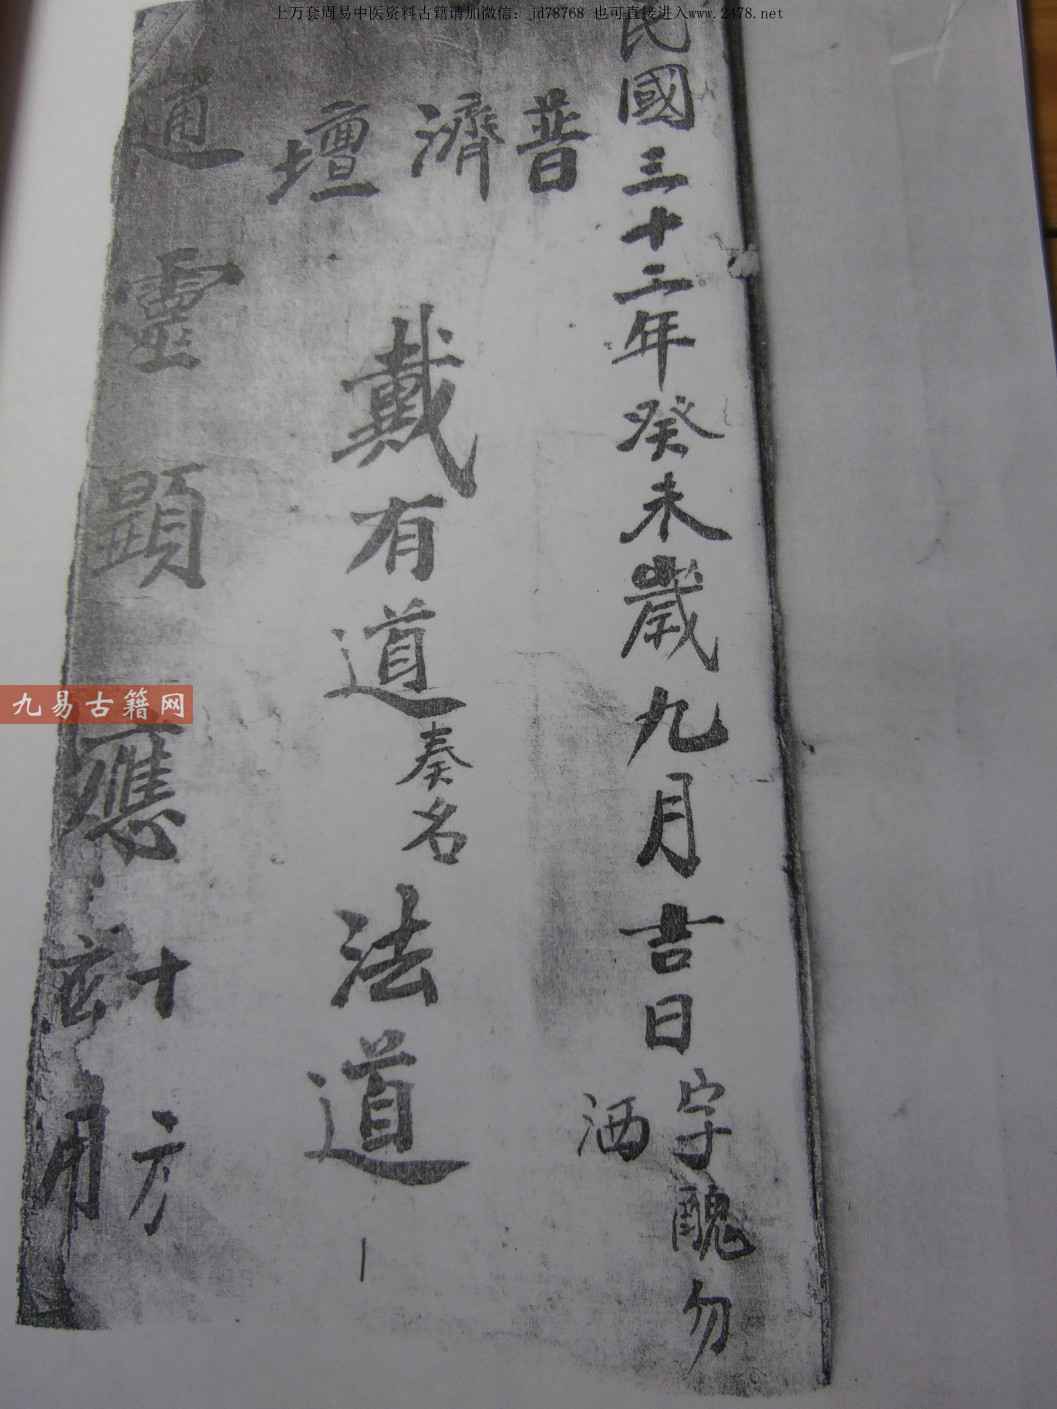 上万套周易中医资料古籍请加微信：jd78768 也可直接进入www.2478.net
民國三十二年癸未歲九月吉日字醜勿
洒
普濟壇
戴有道奏名法道
通靈顯應十方
應用
九易古籍网